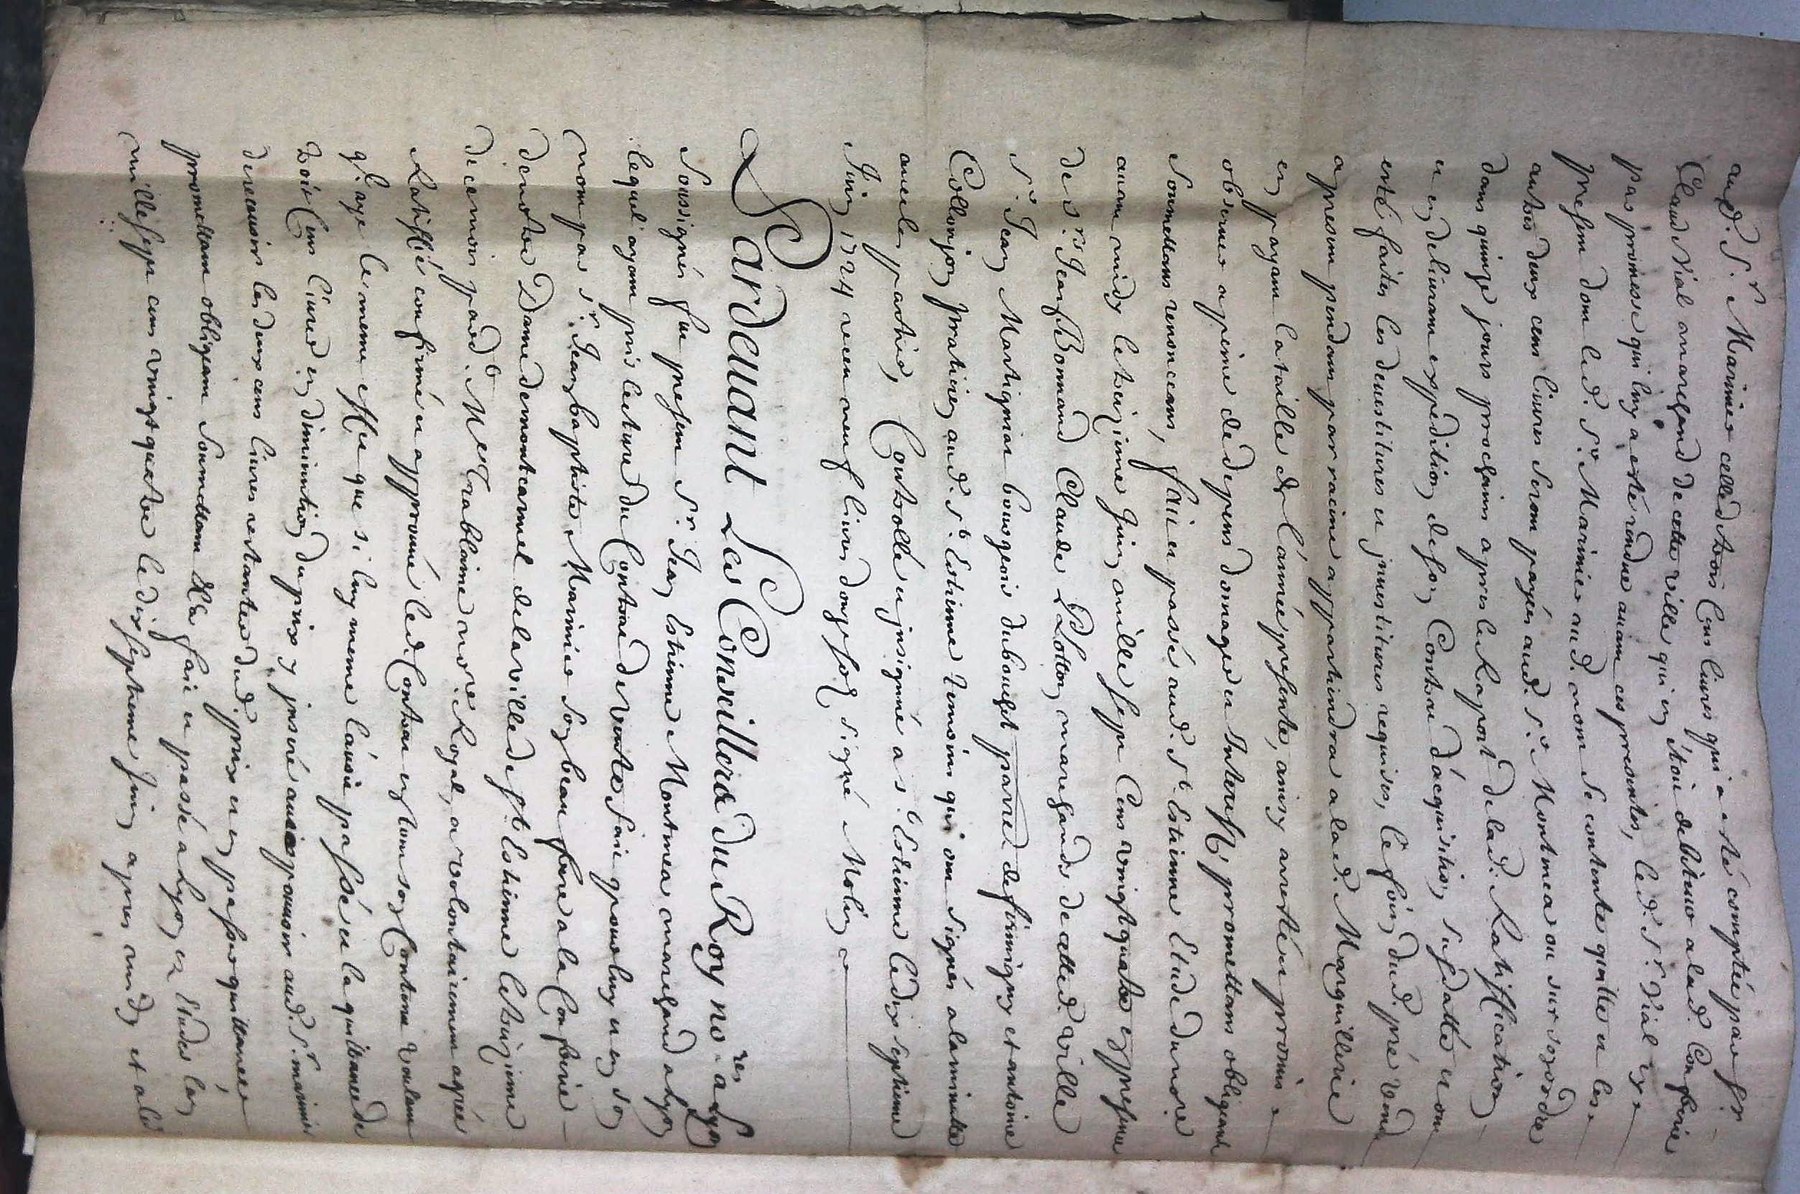 aud. Sr. Marinier celle de trois Cens livres qui a esté comptée par Sr.
Claude Vial marchand de cette ville qui en étoit debiteur a lad. Confrerie
par promesse qui luy a esté rendue avant ces presentes, led. Sr. Vial icy
present dont led. Sr. Marinier aud. nom se contente quitte et les
autres deux cens livres seront payés aud. Sr. Montmea ou sur son ordre
dans quinze jours prochains apres le Raport de lad. Ratiffication
et en delivrant expedition de son Contrat d'acquisition susdatté et ont
esté faites les devestitures et jnvestitures requises, le foin dud. pré vendu
a present pendant par racine appartiendra a lad. Marguillerie
en payant la taille de l'année presente, ainsy arresté et promis
observer a peine de depens domages et Interests promettans obligeans
Soumettans renonceans, fait et passé aud. St. Estienne Etude du nore
avant midy le treizieme Juin mille sept Cens vingt quatre en presence
de Srs. Jean Bonnand Claude Plotton marchands de cetted. ville
Sr. Jean Martignian bourgeois du bourgt de firmigny et antoine
Collonjon praticien aud. St. Estienne temoins qui ont signés a la minutte
avec les parties, Controllé et jnsigné a St. Estienne le dix septieme
Juin 1724 receu neuf livres douze sols signé Molin
Pardevant Les Conseillers du Roy nores. a Lyon
Soussignés fut present Sr. Jean Estienne Montmea marchand a lyon
lequel ayant pris lecture du Contrat de vente fait pour luy et en son
nom par Sr. Jean baptiste Marinier son beau frere a la Confrerie
de notre Dame de montcarmel de la ville de St. Estienne le treizieme
de ce mois pard. Me. Trablaine nore. Royal, a volontairement agréé
Ratiffié confirmé et approuvé led. Contrat en tout son Contenu voulant
qu'il aye le meme effet que si luy meme l'avoit passé et la quittance de
trois Cens livres en diminution du prix y jnseré avec pouvoir aud. Sr. marinier
de recevoir les deux cens livres restantes dud. prix et en passer quittance
promettant obligeant Soumettant &a fait et passé a lyon ez Etudes l'an
mille sept cens vingt quatre le dix septieme Juin apres midy et a led.